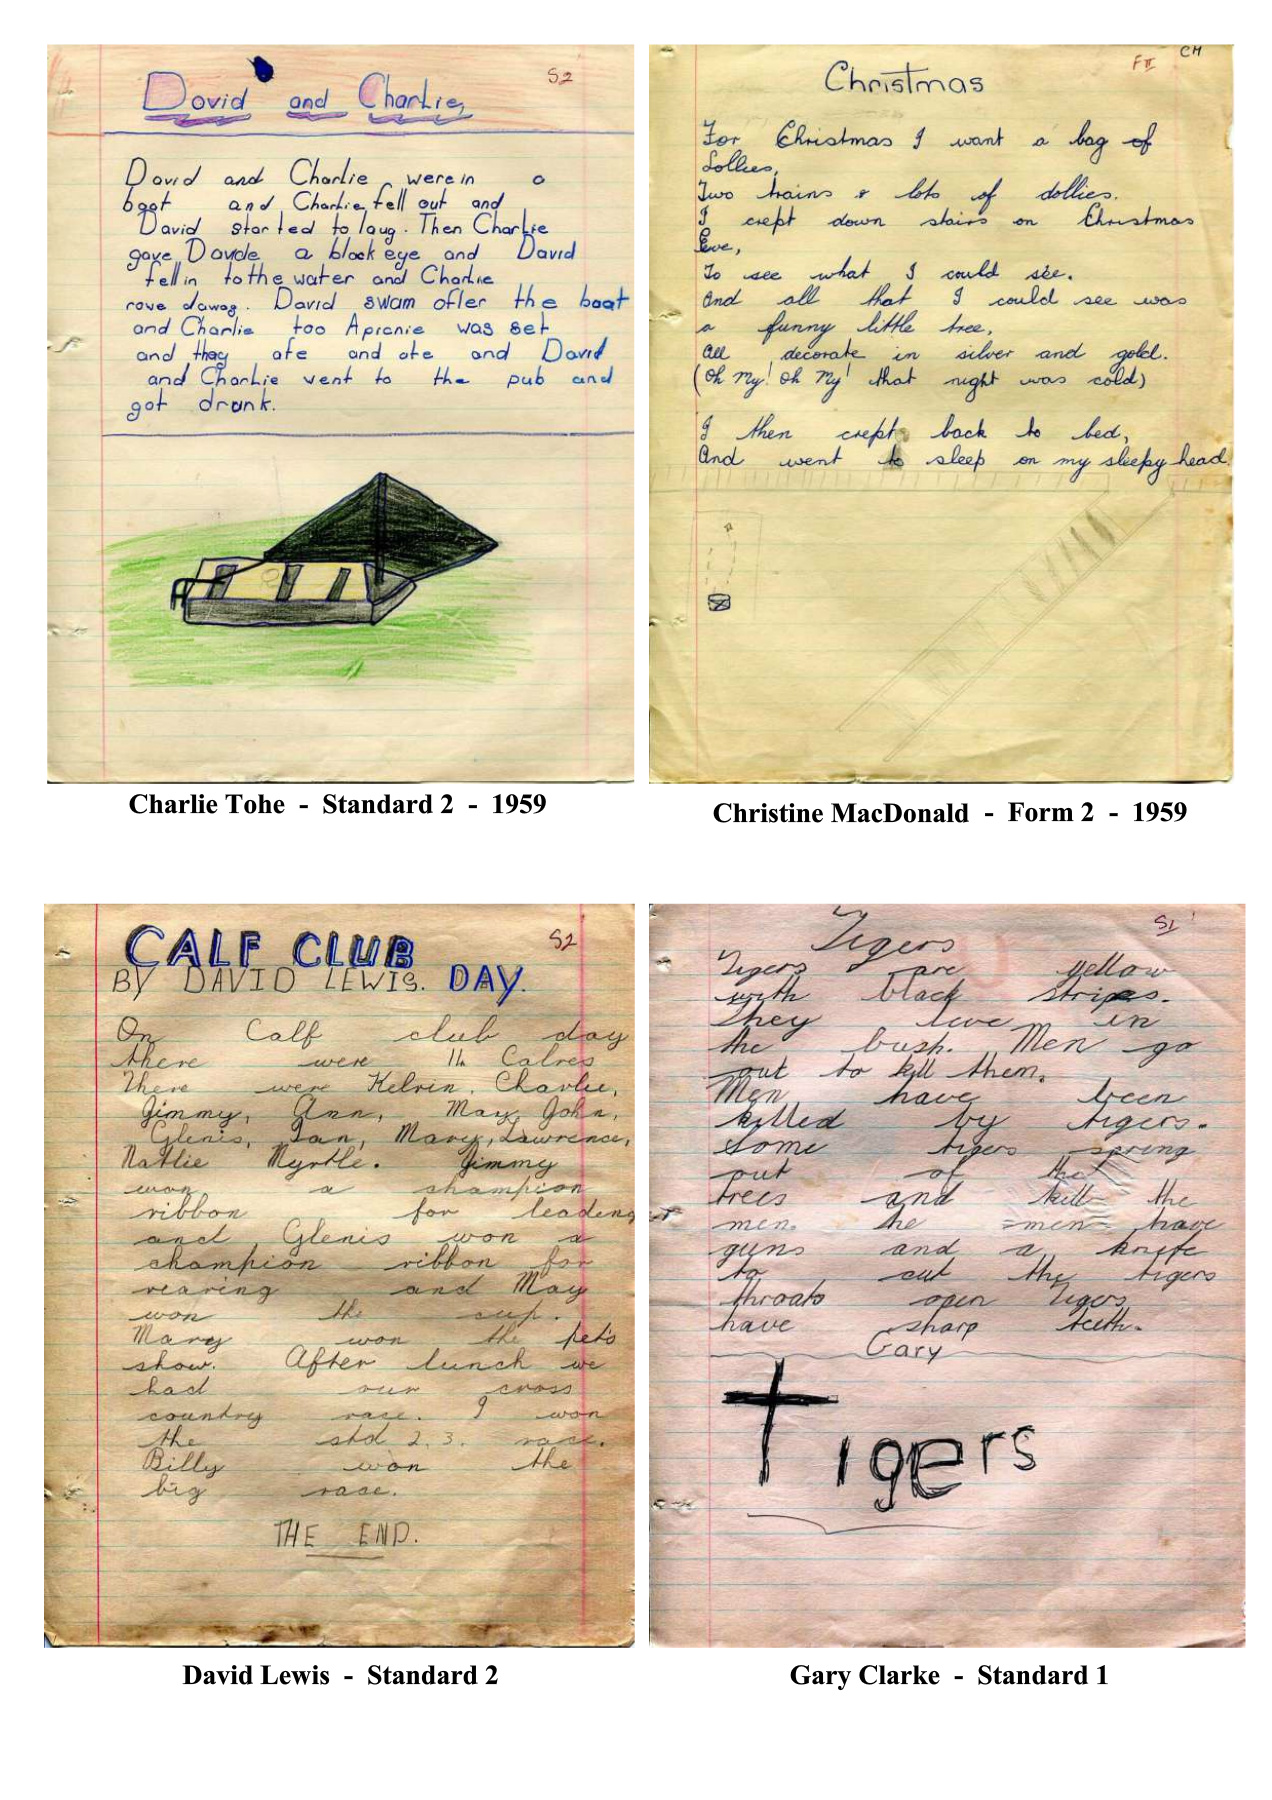 S2
David and Charlie,
David and Charlie were in a
boat and Charlie, fell out and
David started to laug. Then Charlie
gave Davide a black eye and David
fell in to the water and Charlie
rove daway. David swam after the boat
and Charlie too Apicnic was set
and they ate and ate and David
and Charlie went to the pub and
got drunk.
Charlie Tohe - Standard 2 - 1959
CM
F II
Christmas
For Christmas I want a bag of
Lollies,
Two trains & lots of dollies.
I crept down stairs on Christmas
Eve,
To see what I could see.
And all that I could see was
a funny little tree,
All decorate in silver and gold.
(Oh My! Oh My! that night was cold)
I then crept back to bed,
And went to sleep on my sleepy head.
Christine MacDonald - Form 2 - 1959
S2
CALF CLUB
BY DAVID LEWIS. DAY.
On Calf club day
there were Calves
There were Kelvin, Charlie,
Jimmy, Ann, May, John,
Glenis, Ian, Mary, Lawrence,
Natlie Myrtle. Jimmy
won a champion
ribbon for leading
and Glenis won a
champion ribbon for
rearing and May
won the cup.
Mary won the pets
show. After lunch we
had our cross
country race. I won
the std 2. 3. race.
Billy won the
big race.
THE END.
David Lewis - Standard 2
S1
Tigers
Tigers are yellow
with black stripes.
They live in
the bush. Men go
out to kill them.
Men have been
killed by tigers.
Some tigers spring
out of the
trees and kill the
men. the men have
guns and a knife
to cut the tigers
throats open Tigers
have sharp teeth.
Gary
Tigers
Gary Clarke - Standard 1